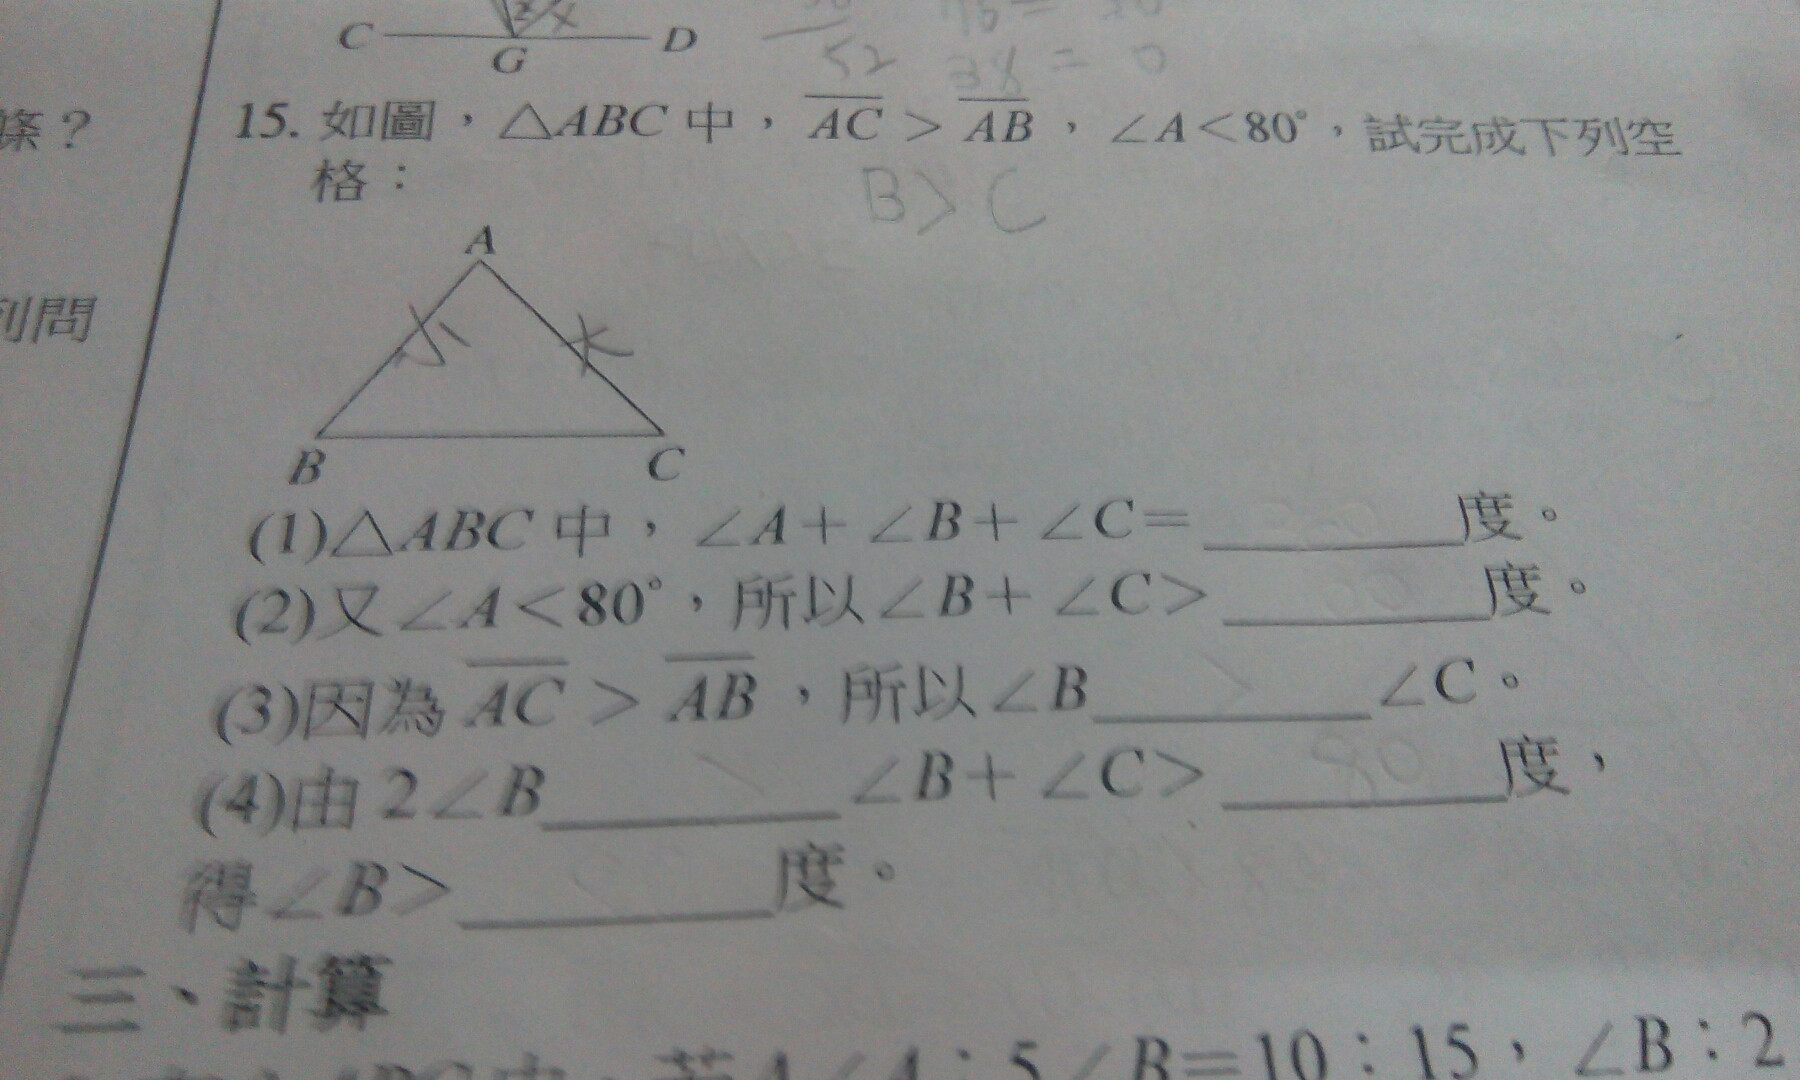 C G D
52 38 = 0
條？
15. 如圖，△ABC 中，AC > AB，∠A<80°，試完成下列空
格：
B > C
列問
A
小 大
B C
(1)△ABC 中，∠A+∠B+∠C=______度。
(2)又∠A<80°，所以∠B+∠C>______度。
(3)因為 AC > AB，所以∠B______∠C。
(4)由 2∠B______∠B+∠C>______度，
得∠B>______度。
三、計算
B=10：15，∠B：2